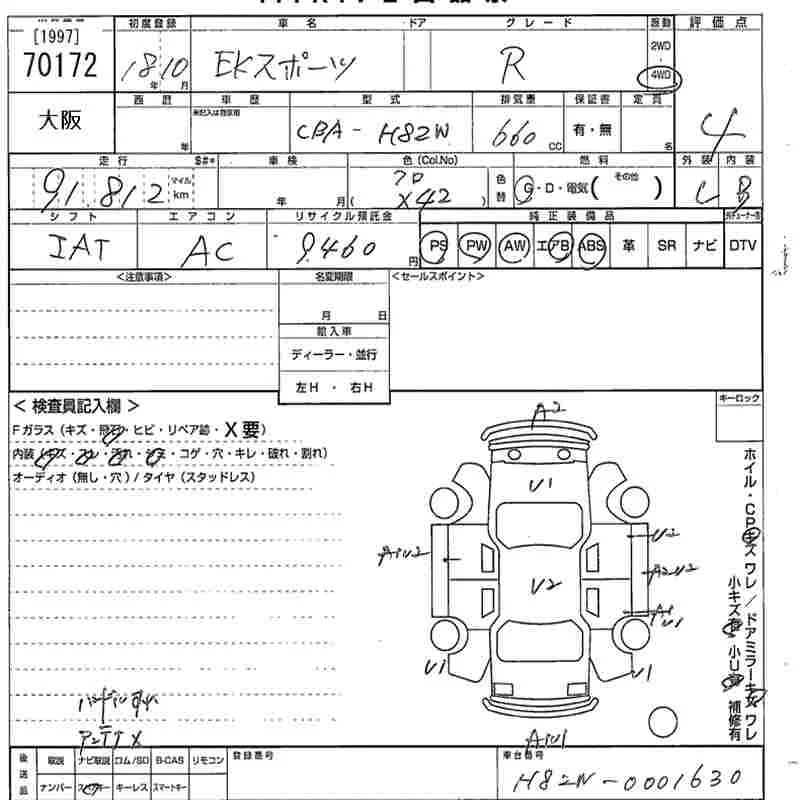 [1997] 初度登録 車名 ドア グレード 駆動 評価点
70172 18年10月 EKスポーツ R 2WD・4WD 4
大阪 西暦 車歴 型式 排気量 保証書 定員
未記入は自家用
年 CBA-H82W 660cc 有・無 名
走行 $#* 車検 色(Col,No) 燃料 外装 内装
91.812 マイル km 年 月 (X42) 色替 G・D・電気( その他 ) C B
シフト エアコン リサイクル預託金 純正装備品
IAT AC 9.460円 PS PW AW エアB ABS 革 SR ナビ DTV
<注意事項> 名変期限 <セールスポイント>
月 日
輸入車
ディーラー・並行
左H・右H
<検査員記入欄> キーロック
Fガラス(キズ・飛石・ヒビ・リペア跡・X要)
内装(キズ・スレ・汚れ・シミ・コゲ・穴・キレ・破れ・割れ)
オーディオ(無し・穴)/タイヤ(スタッドレス)
A2
U1
U2
A1U2
A2U2
U2
A1
U1
U1
U1
A1U1
ホイル・CPキズ ワレ/ドアミラーキズ ワレ
小キズ有 小U有 補修有
ハンドルスレ
アンテナX
後送品 取説 ナビ取説 ロム/SD B-CAS リモコン 登録番号 車台番号
ナンバー スペアキー キーレス スマートキー H82W-0001630